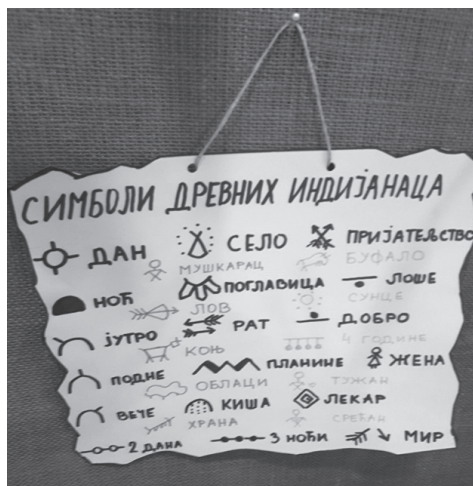 СИМБОЛИ ДРЕВНИХ ИНДИЈАНАЦА
ДАН СЕЛО ПРИЈАТЕЉСТВО
МУШКАРАЦ БУФАЛО
НОЋ ПОГЛАВИЦА ЛОШЕ
ЛОВ СУНЦЕ
ЈУТРО РАТ ДОБРО
КОЊ 4 ГОДИНЕ
ПОДНЕ ПЛАНИНЕ ЖЕНА
ОБЛАЦИ ТУЖАН
ВЕЧЕ КИША ЛЕКАР
ХРАНА СРЕЋАН
2 ДАНА 3 НОЋИ МИР